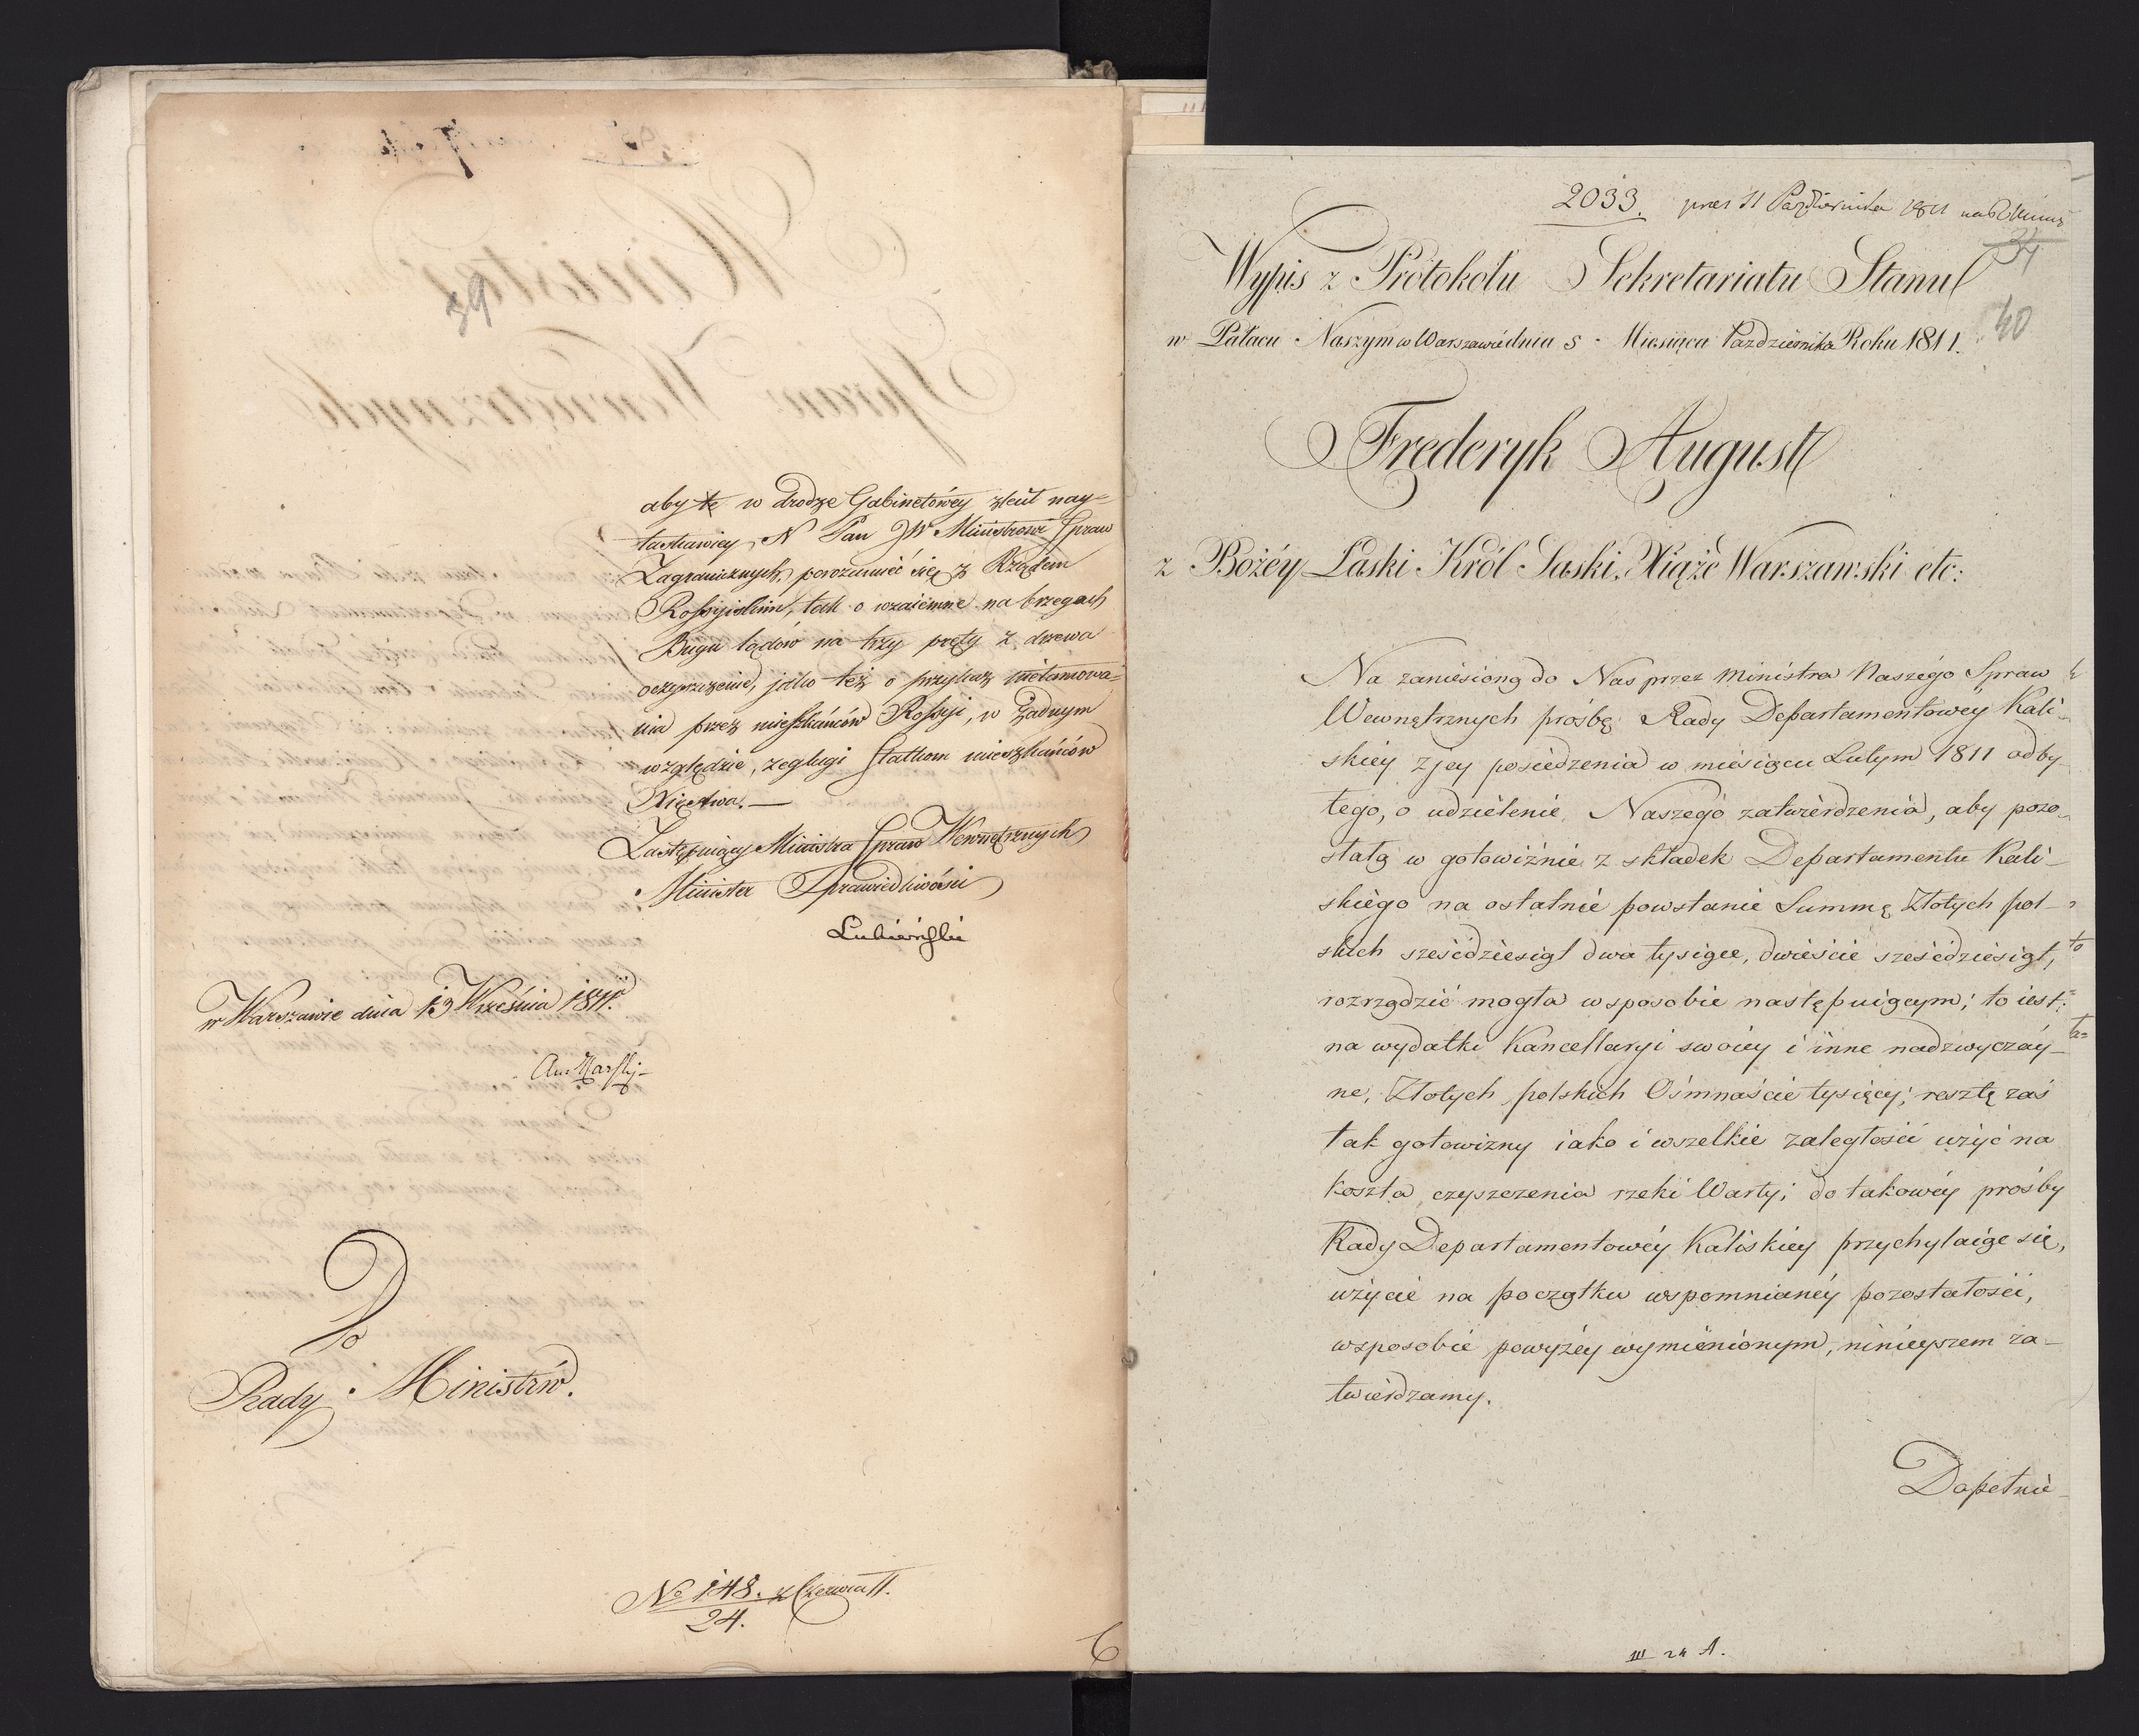 39
aby te w drodze Gabinetowey zlecił nay=
łaskawiey N Pan JW Ministrowi Spraw
Zagranicznych, porozumieć się z Rządem
Rossyiskim, tak o wzaiemne na brzegach
Bugu lądów na trzy pręty z drzewa
oczyszczenie, jako też o przykaz nietamowa-
nia przez mieszkańców Rossyi, w żadnym
względzie, żeglugi statkom mieszkańców
Xięstwa.—
Zastępuiący Ministra Spraw Wewnętrznych
Minister Sprawiedliwości
Lubieński
w Warszawie dnia 13 Września 1811.
Do
Rady Ministrów.
No 148. z Czerwca 11.
24.
2033. prez 11 Października 1811
34
Wypis z Protokołu Sekretariatu Stanu
40
w Pałacu Naszym w Warszawie dnia 5 - Miesiąca Października Roku 1811.
Frederyk August
z Bożéy Łaski Król Saski, Xiąże Warszawski etc:
Na zaniesioną do Nas przez Ministra Naszégo Spraw
Wewnętrznych prośbę Rady Departamentowéy Kali-
skiéy z jey posiedzenia w miesiącu Lutym 1811 odby-
tego, o udzielenie Naszego zatwierdzenia, aby pozo-
stałą w gotowiźnie z składek Departamentu Kali-
skiégo na ostatnie powstanie Summę Złotych pol-
skich sześćdziesiąt dwa tysiące, dwieście sześćdziesiąt,
rozrządzić mogła w sposobie następuiącym; to iest:
na wydatki Kancellaryi swoiéy i inne nadzwyczáy-
ne, Złotych polskich Ośmnaście tysięcy; resztę zaś
tak gotowizny iako i wszelkie zaległości użyć na
koszta czyszczenia rzeki Warty; do takowéy prośby
Rady Departamentowéy Kaliskiéy przychylaiąc się,
użycie na początku wspomnianéy pozostałości,
w sposobie powyżéy wymienionym, ninieyszem za-
twierdzamy.
Dopełnie-
III 24 A.